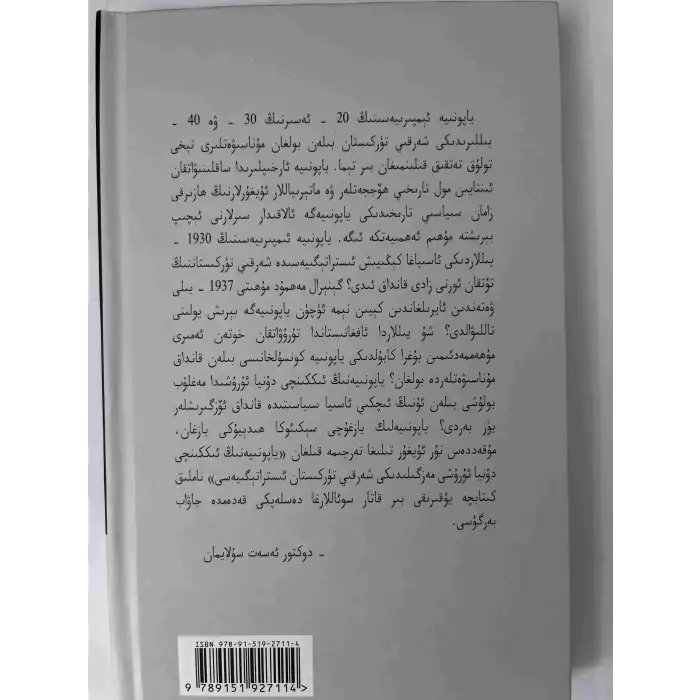 ياپونىيە ئىمپىرىيەسىنىڭ 20 - ئەسىرنىڭ 30 - ۋە 40 -
يىللىرىدىكى شەرقىي تۈركىستان بىلەن بولغان مۇناسىۋەتلىرى تېخى
تولۇق تەتقىق قىلىنمىغان بىر تېما. ياپونىيە ئارخىپلىرىدا ساقلىنىۋاتقان
ئىنتايىن مول تارىخىي ھۆججەتلەر ۋە ماتېرىياللار ئۇيغۇرلارنىڭ ھازىرقى
زامان سىياسىي تارىخىدىكى ياپونىيەگە ئالاقىدار سىرلارنى ئېچىپ
بېرىشتە مۇھىم ئەھمىيەتكە ئىگە. ياپونىيە ئىمپىرىيەسىنىڭ 1930 -
يىللاردىكى ئاسىياغا كېڭىيىش ئىستراتېگىيەسىدە شەرقىي تۈركىستاننىڭ
تۇتقان ئورنى زادى قانداق ئىدى؟ گېنېرال مەھمۇد مۇھىتى 1937 - يىلى
ۋەتەندىن ئايرىلغاندىن كېيىن نېمە ئۈچۈن ياپونىيەگە بېرىش يولىنى
تاللىۋالدى؟ شۇ يىللاردا ئافغانىستاندا تۇرۇۋاتقان خوتەن ئەمىرى
مۇھەممەدئىمىن بۇغرا كابۇلدىكى ياپونىيە كونسۇلخانىسى بىلەن قانداق
مۇناسىۋەتلەردە بولغان؟ ياپونىيەنىڭ ئىككىنچى دۇنيا ئۇرۇشىدا مەغلۇپ
بولۇشى بىلەن ئۇنىڭ ئىچكى ئاسىيا سىياسىتىدە قانداق ئۆزگىرىشلەر
يۈز بەردى؟ ياپونىيەلىك يازغۇچى سېكىئوكا ھىدېيۇكى يازغان،
مۇقەددەس نۇر ئۇيغۇر تىلىغا تەرجىمە قىلغان «ياپونىيەنىڭ ئىككىنچى
دۇنيا ئۇرۇشى مەزگىلىدىكى شەرقىي تۈركىستان ئىستراتېگىيەسى» ناملىق
كىتابچە يۇقىرىقى بىر قاتار سوئاللارغا دەسلەپكى قەدەمدە جاۋاب
بەرگۈسى.
- دوكتور ئەسەت سۇلايمان
ISBN 978-91-519-2711-4
9 789151 927114 >